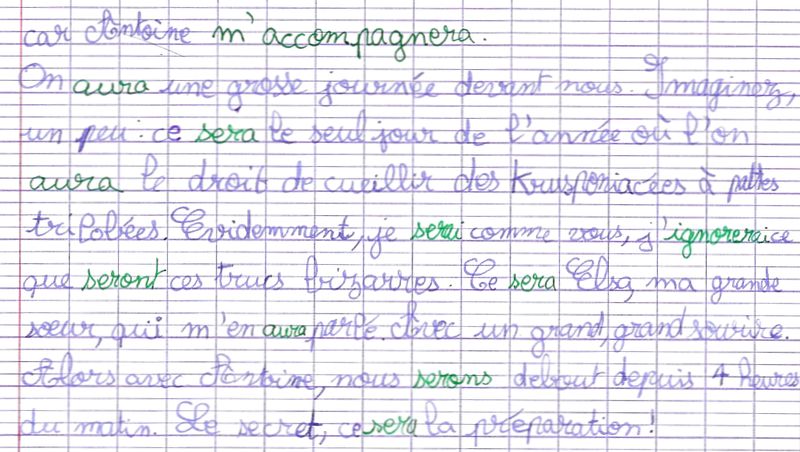 car Antoine m'accompagnera.
On aura une grosse journée devant nous. Imaginez,
un peu : ce sera le seul jour de l'année où l'on
aura le droit de cueillir des Krusponiacées à pattes
trilobées. Evidemment, je serai comme vous, j'ignorerai ce
que seront ces trucs bizarres. Ce sera Elsa, ma grande
sœur, qui m'en aura parlé. Avec un grand, grand sourire.
Alors avec Antoine, nous serons debout depuis 4 heures
du matin. Le secret, ce sera la préparation !